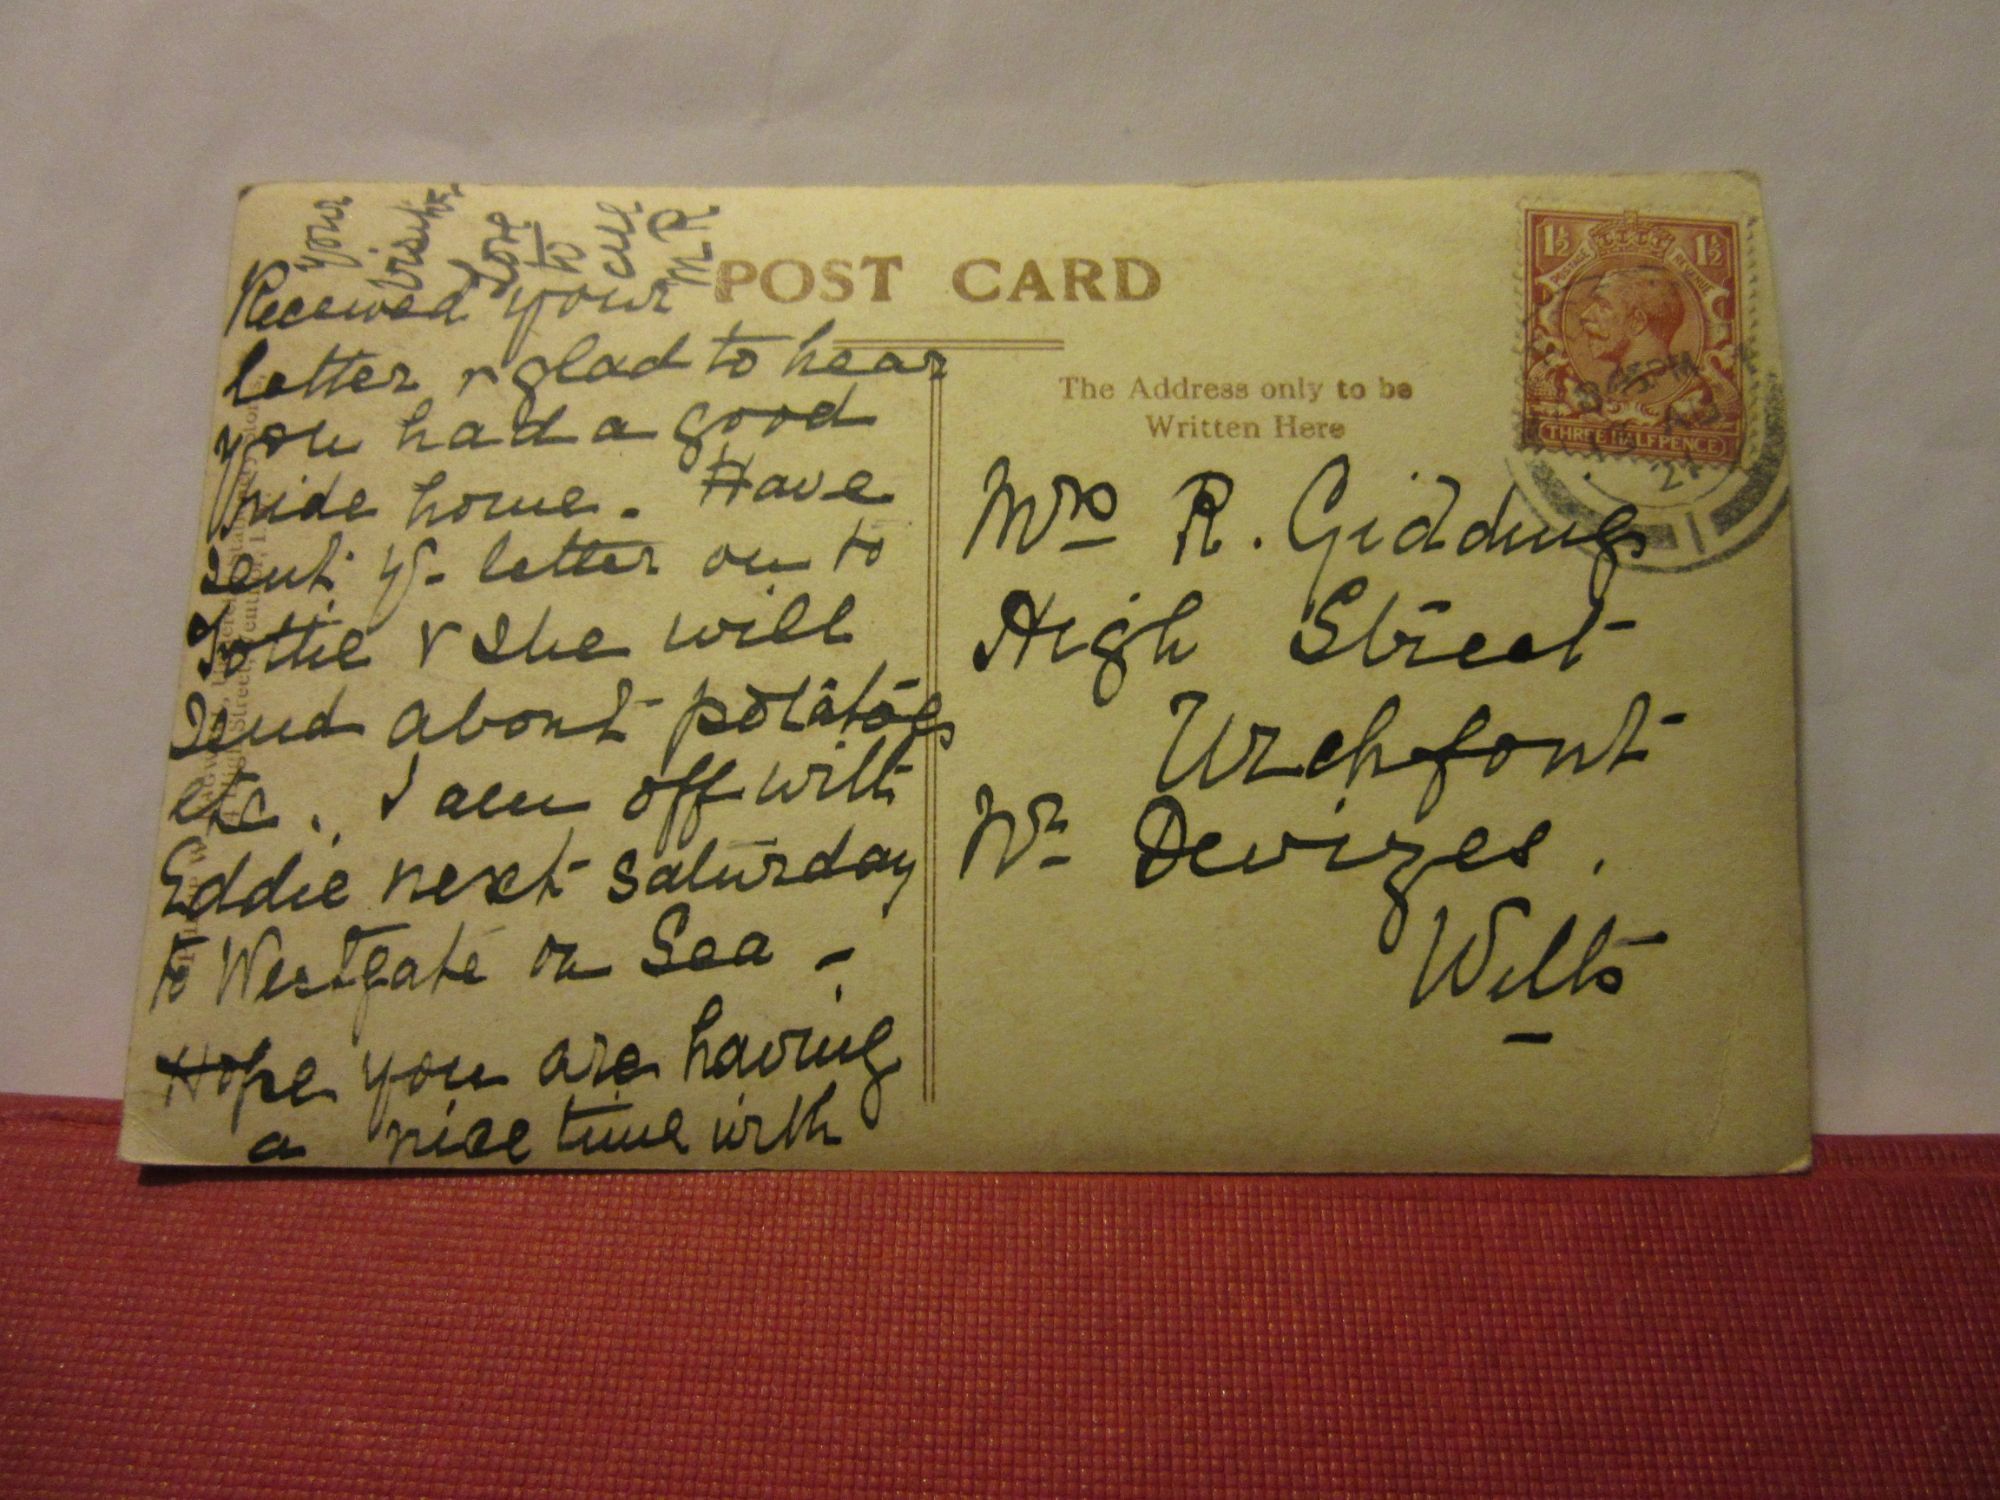 POST CARD
The Address only to be
Written Here
1½ 1½
POSTAGE REVENUE
THREE HALFPENCE
PM
Received your
letter & glad to hear
you had a good
ride home. Have
sent yr letter on to
Tottie & she will
send about potatoes
etc. I am off with
Eddie next Saturday
to Westgate on Sea -
Hope you are having
a nice time with
your
Love
to
all
M R
Mrs R. Giddings
High Street
Urchfont
Nr Devizes.
Wilts